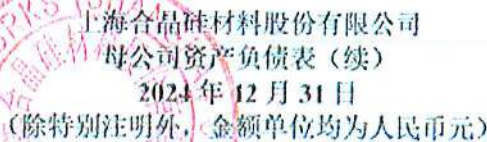 上海合晶硅材料股份有限公司
母公司资产负债表（续）
2024 年 12 月 31 日
（除特别注明外，金额单位均为人民币元）